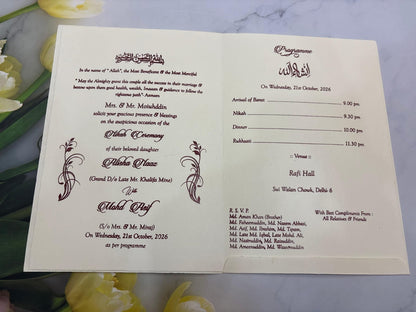 بسم الله الرحمن الرحيم
In the name of "Allah", the Most Beneficane & the Most Merciful
"May the Almighty grant this couple all the success in their marriage &
bestow upon them good health, wealth, Imaan & guidance to follow the
righteous path"- Aameen
Mrs. & Mr. Moinuddin
solicit your gracious presence & blessings
on the auspicious occasion of the
Nikah Ceremony
of their beloved daughter
Alisha Naaz
(Grand D/o Late Mr. Khalifa Mina)
With
Mohd Asif
(S/o Mrs. & Mr. Miraj)
On Wednesday, 21st October, 2026
as per programme
Programme
انشاءالله
On Wednesday, 21st October, 2026
Arrival of Barat 9.00 pm.
Nikah 9.30 pm.
Dinner 10.00 pm.
Rukhsati 11.30 pm.
:: Venue ::
Rafi Hall
Sui Walan Chowk, Delhi 6
R. S. V. P.
Md. Aman Khan (Brother)
Md. Faheemuddin, Md. Naeem Abbasi,
Md. Asif, Md. Ibrahim, Md.
Md. Late Md. Iqbal, Late Mohd. Ali,
Md. Nasiruddin, Md. Raisuddin,
Md. Ameeruddin, Md.
With Best Compliments From :
All Relatives & Friends